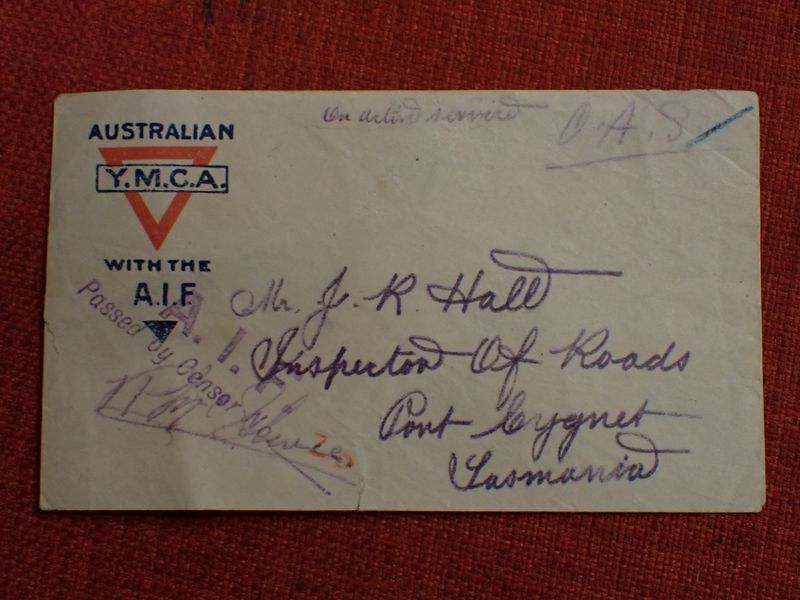 On active service
O.A.S
AUSTRALIAN
Y.M.C.A.
WITH THE
A.I.F.
Passed by Censor
A.I.F.
Mr. J. R. Hall
Inspector Of Roads
Port Cygnet
Tasmania